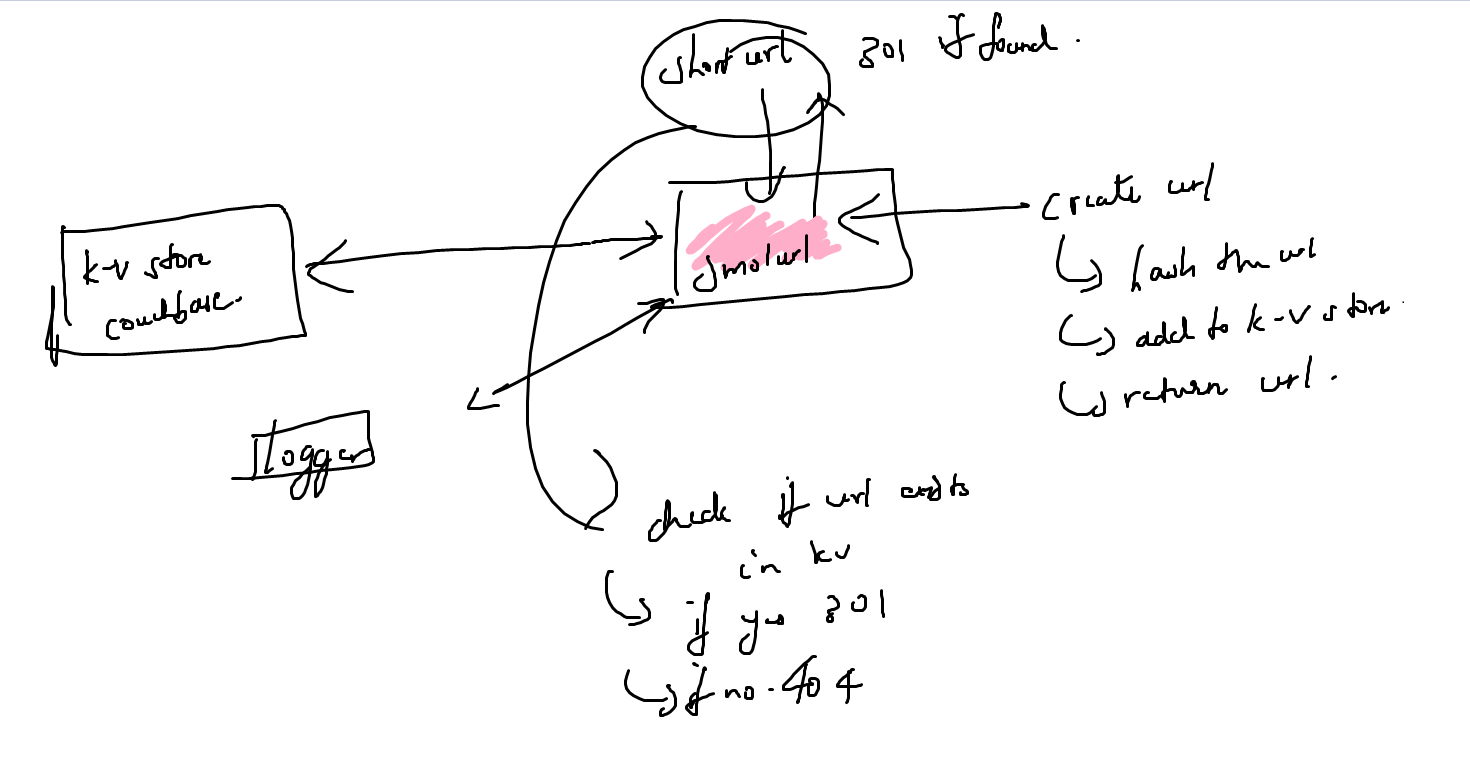 short url
301 if found.
k-v store
couchbase.
smolurl
create url
hash the url
add to k-v store.
return url.
logger
check if url exists
in kv
if yes 301
if no - 404